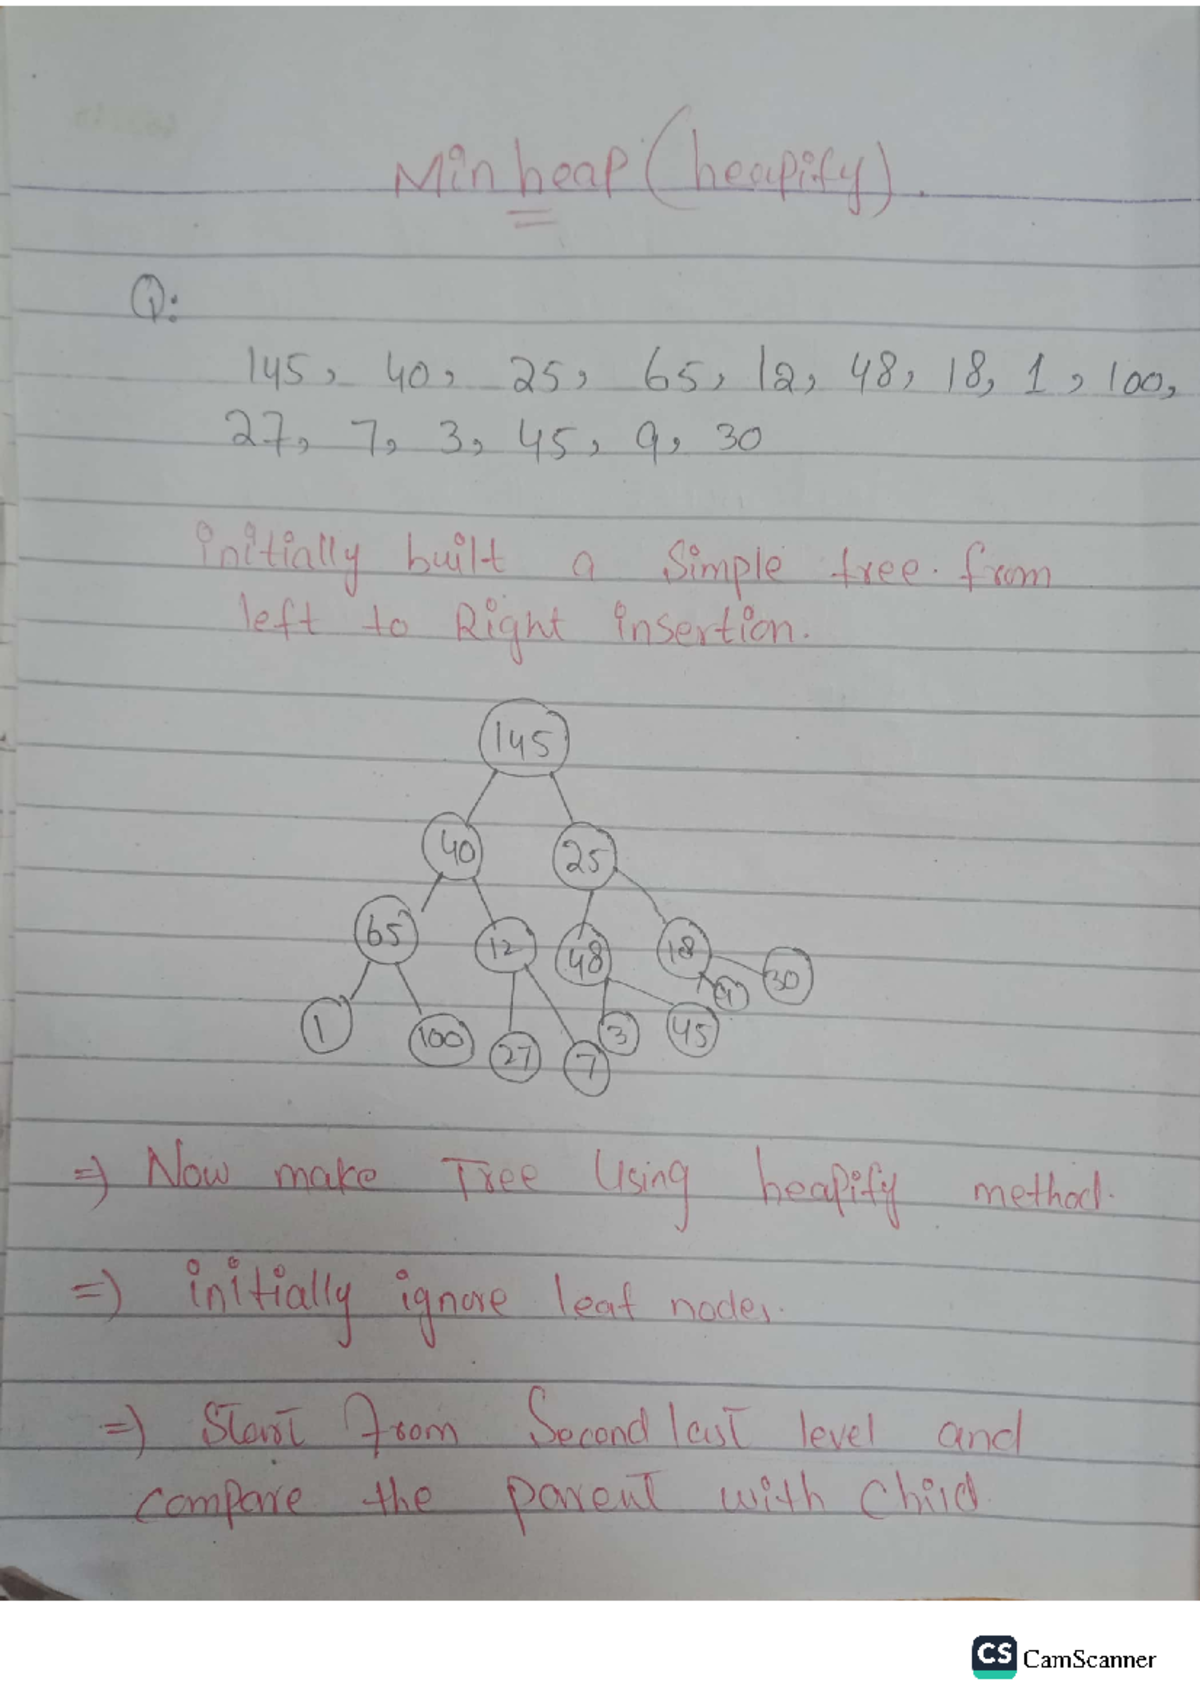 Min heap (heapify).
Q:
145, 40, 25, 65, 12, 48, 18, 1, 100,
27, 7, 3, 45, 9, 30
initially built a Simple tree. from
left to Right insertion.
145
40 25
65 12 48 18 30
9
1 100 27 7 3 45
=) Now make Tree Using heapify method.
=) initially ignore leaf nodes.
=) Start from Second last level and
compare the parent with child
CS CamScanner